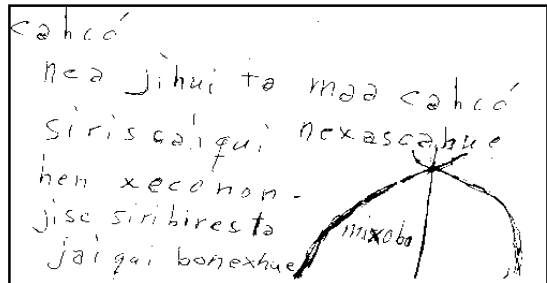 cahcó
nea jihui ta maa cahcó
siris caiqui nexascahue
hen xeconon-
jisc siribiresta
jaiqui bonexhue
mixobo